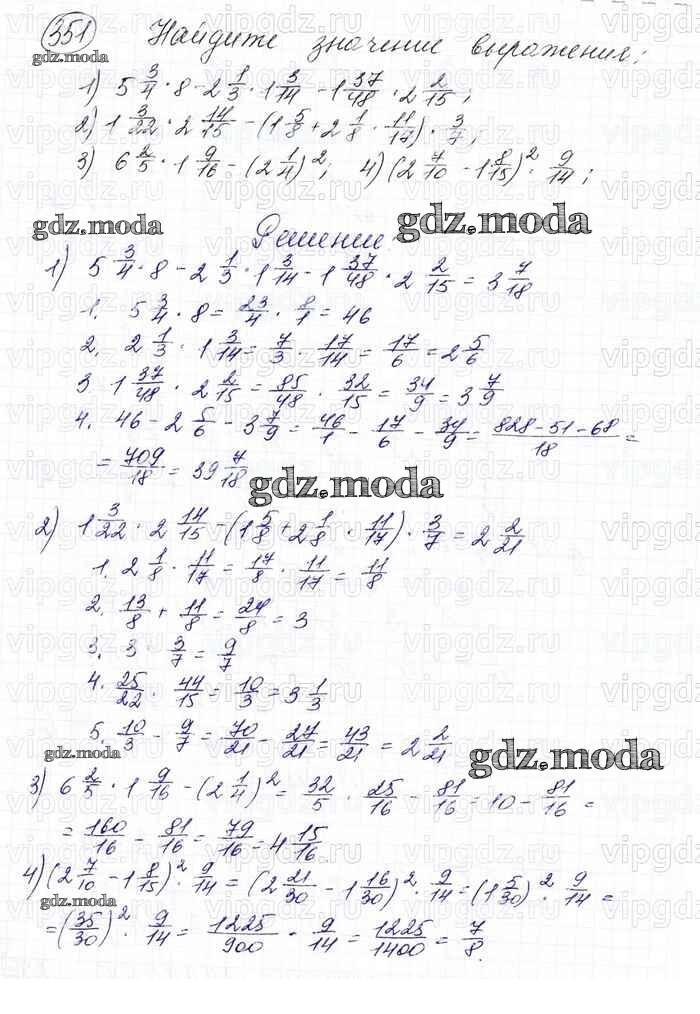 351 Найдите значение выражения:
gdz.moda
1) 5 3/4 · 8 - 2 1/3 · 1 3/14 - 1 37/48 · 2 2/15;
2) 1 3/22 · 2 14/15 - (1 5/8 + 2 1/8 · 11/17) · 3/7;
3) 6 2/5 · 1 9/16 - (2 1/4)²; 4) (2 7/10 - 1 8/15)² · 9/14;
gdz.moda Решение: gdz.moda
1) 5 3/4 · 8 - 2 1/3 · 1 3/14 - 1 37/48 · 2 2/15 = 3 7/18
1. 5 3/4 · 8 = 23/4 · 8/1 = 46
2. 2 1/3 · 1 3/14 = 7/3 · 17/14 = 17/6 = 2 5/6
3 1 37/48 · 2 2/15 = 85/48 · 32/15 = 34/9 = 3 7/9
4. 46 - 2 5/6 - 3 7/9 = 46/1 - 17/6 - 34/9 = (828-51-68)/18 =
= 709/18 = 39 7/18
gdz.moda
2) 1 3/22 · 2 14/15 - (1 5/8 + 2 1/8 · 11/17) · 3/7 = 2 2/21
1. 2 1/8 · 11/17 = 17/8 · 11/17 = 11/8
2. 13/8 + 11/8 = 24/8 = 3
3. 3 · 3/7 = 9/7
4. 25/22 · 44/15 = 10/3 = 3 1/3
5. 10/3 - 9/7 = 70/21 - 27/21 = 43/21 = 2 2/21
gdz.moda gdz.moda
3) 6 2/5 · 1 9/16 - (2 1/4)² = 32/5 · 25/16 - 81/16 = 10 - 81/16 =
= 160/16 - 81/16 = 79/16 = 4 15/16
4) (2 7/10 - 1 8/15)² · 9/14 = (2 21/30 - 1 16/30)² · 9/14 = (1 5/30)² · 9/14 =
gdz.moda
= (35/30)² · 9/14 = 1225/900 · 9/14 = 1225/1400 = 7/8.
vipgdz.ru